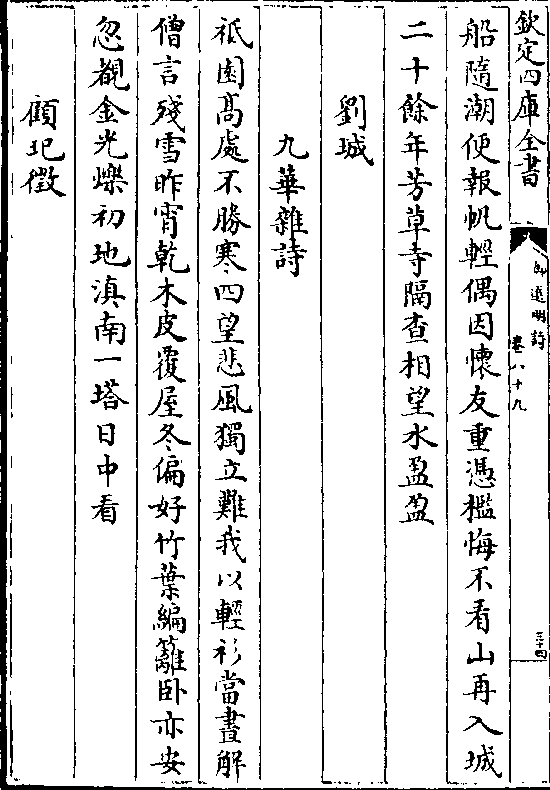 欽定四庫全書
御選明詩
卷八十九
三十四
船隨潮便報帆輕偶因懷友重憑檻悔不看山再入城
二十餘年芳草寺隔查相望水盈盈
劉城
九華雜詩
祗園髙處不勝寒四望悲風獨立難我以輕衫當晝解
僧言殘雪昨宵乾木皮覆屋冬偏好竹葉編籬卧亦安
忽覩金光爍初地滇南一塔日中看
顧圯徵